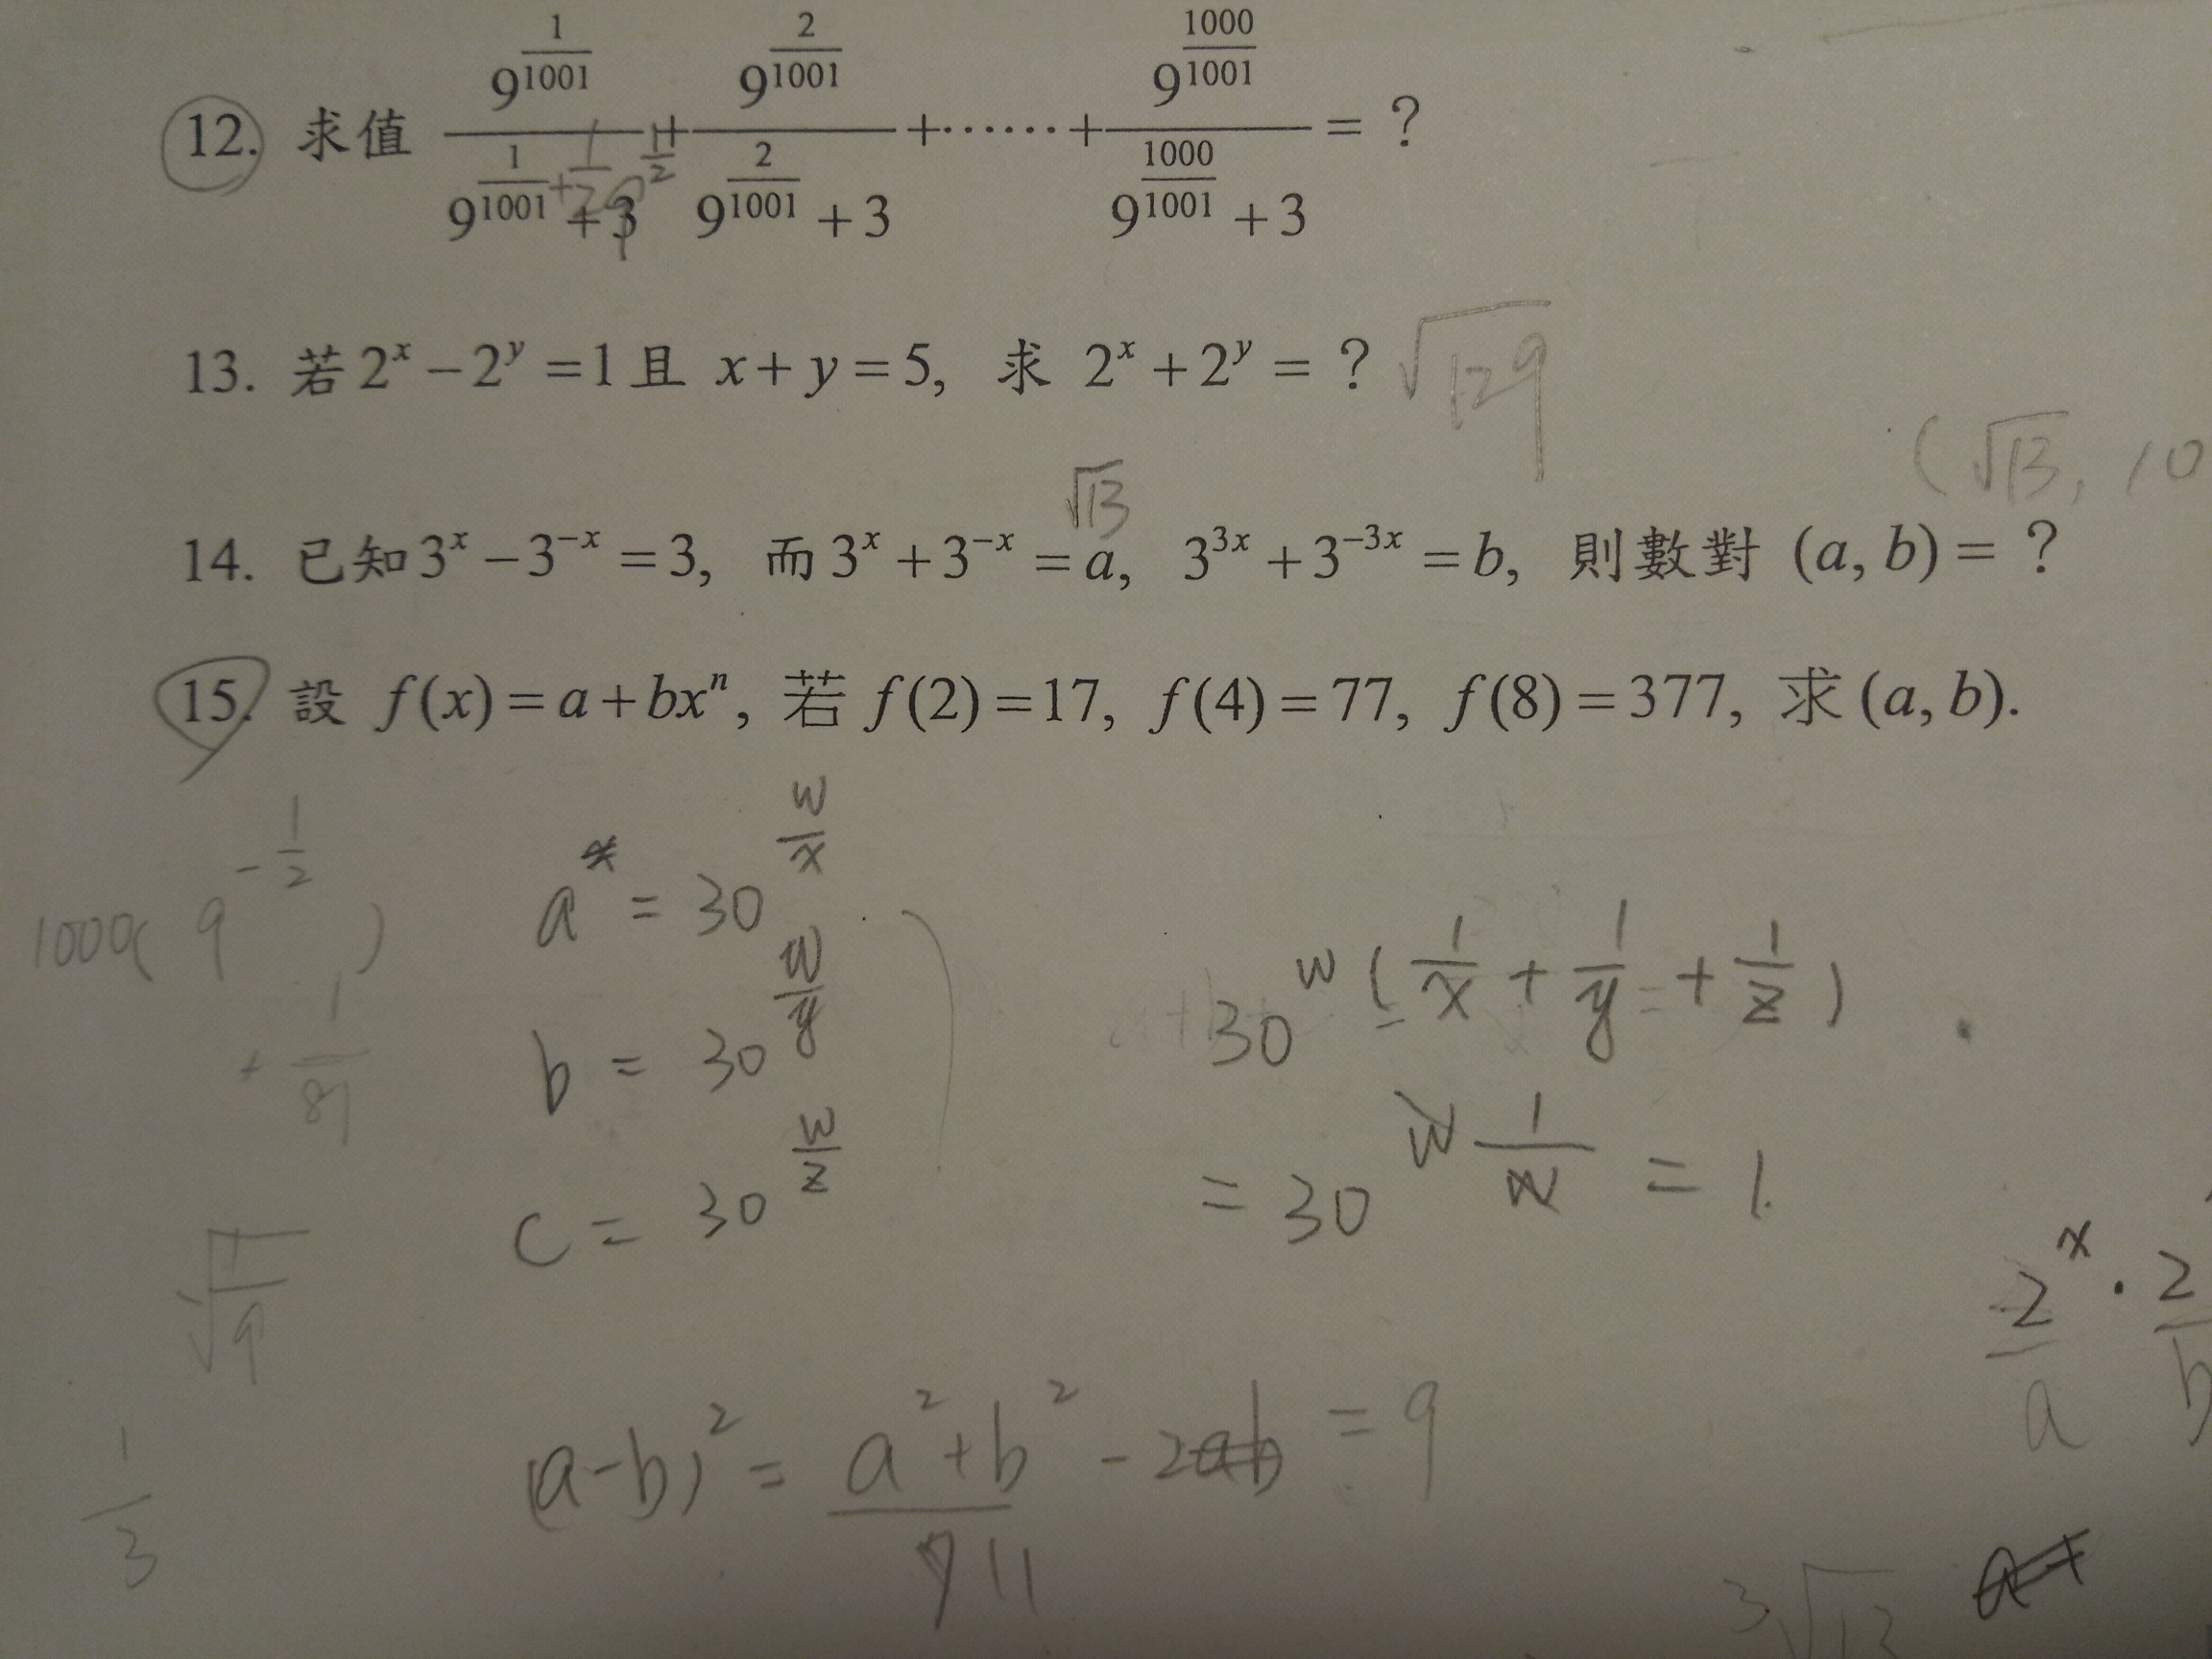 12. 求值 \frac{9^{\frac{1}{1001}}}{9^{\frac{1}{1001}}+3}+\frac{9^{\frac{2}{1001}}}{9^{\frac{2}{1001}}+3}+……+\frac{9^{\frac{1000}{1001}}}{9^{\frac{1000}{1001}}+3}= ?
13. 若 2^x − 2^y = 1 且 x + y = 5, 求 2^x + 2^y = ? √129
(√13, 10
√13
14. 已知 3^x − 3^{-x} = 3, 而 3^x + 3^{-x} = a, 3^{3x} + 3^{-3x} = b, 則數對 (a, b) = ?
15. 設 f(x) = a + bx^n, 若 f(2) = 17, f(4) = 77, f(8) = 377, 求 (a, b).
1000( 9^{-\frac{1}{2}} )
+ \frac{1}{81}
\sqrt{\frac{1}{9}}
\frac{1}{3}
a = 30^{\frac{w}{x}}
b = 30^{\frac{w}{y}}
c = 30^{\frac{w}{z}}
30^{w(\frac{1}{x}+\frac{1}{y}+\frac{1}{z})}
= 30^{w\frac{1}{w}} = 1.
2^x · 2
a b
(a-b)^2 = a^2+b^2 - 2ab = 9
11
3√13